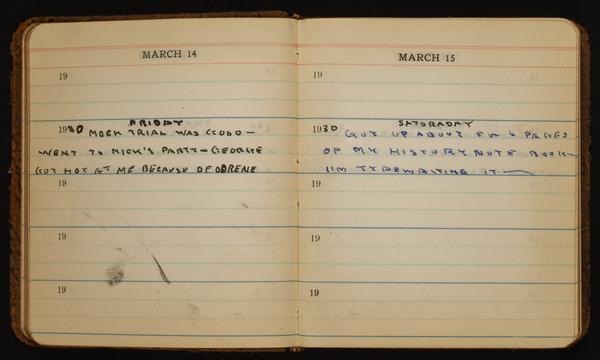 MARCH 14
19
FRIDAY
1930 MOCK TRIAL WAS GOOD—
WENT TO NICK'S PARTY—GEORGE
GOT HOT AT ME BECAUSE OF
19
19
19
MARCH 15
19
SATURADAY
1930 GOT UP ABOUT 6 PAGES
OF MY HISTORY NOTE BOOK—
I'M TYPEWRITING IT—
19
19
19